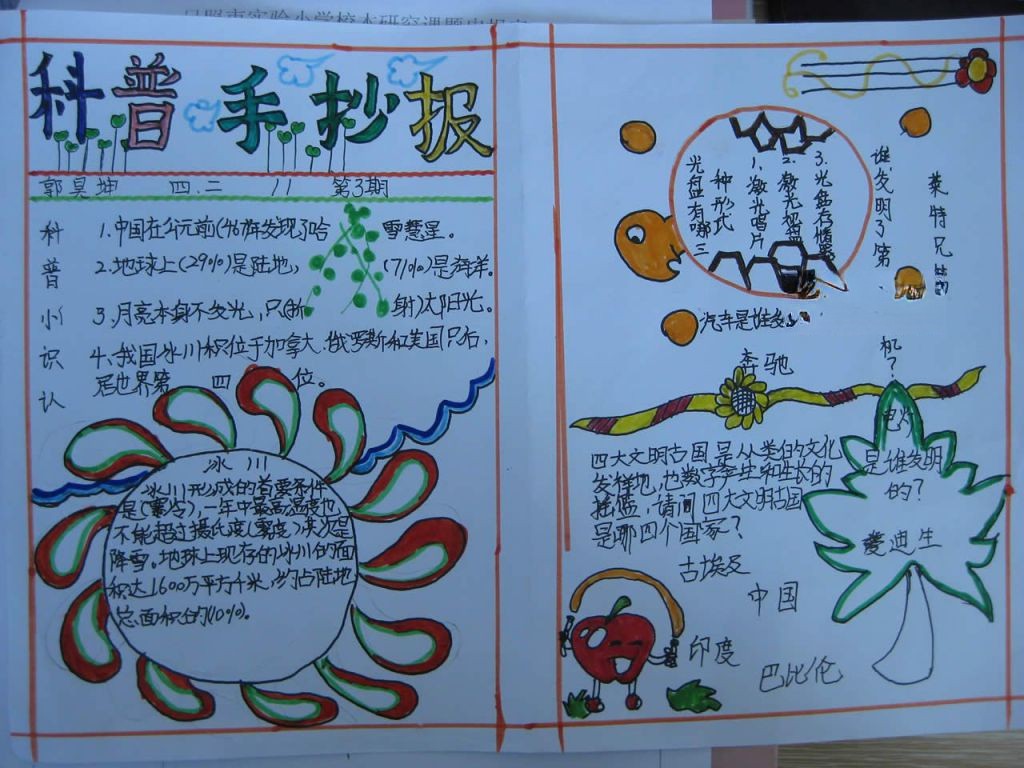 科普手抄报
郭昊坤 四.二 11 第3期
科普小识认
1.中国在公元前(46年发现了哈 雷慧星。
2.地球上(29%)是陆地, (71%)是海洋。
3.月亮本身不发光,只(折 射)太阳光。
4、我国冰川积位于加拿大.俄罗斯和美国只右,
居世界第 四 位。
冰川
冰川形成的首要条件
是(寒冷),一年中最高温度也
不能超过摄氏度(零度)其次是
降雪。地球上现存的冰川的面
积达1600万平方千米,约占陆地
总面积的(10%)。
光盘有哪三
种形式
1.激光唱片
2.激光视
3.光盘存
谁发明了第
莱特兄弟
机?
汽车是谁发
奔驰
四大文明古国是人类的文化
发祥地,也数字产生和生长的
摇篮,请问四大文明古国
是哪四个国家?
古埃及
中国
印度
巴比伦
电灯
是谁发明
的?
爱迪生